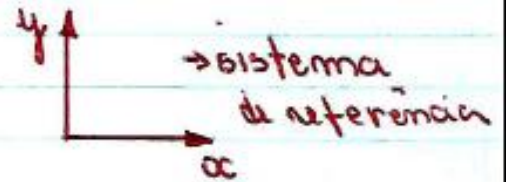 y
→ sistema
de referência
x